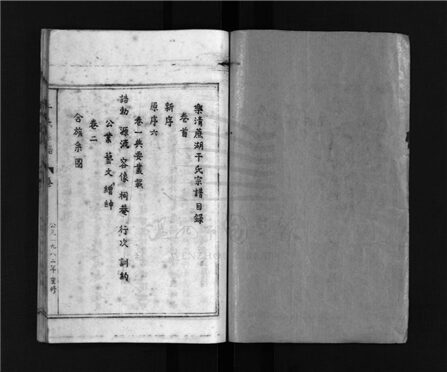 樂清蔗湖干氏宗譜目錄
卷首
新序
原序六
卷一典要叢載
誥勅 源流 容像 祠墓 行次 訓約
公業 藝文 縉紳
卷二
合族系圖
公元一九八二年重修